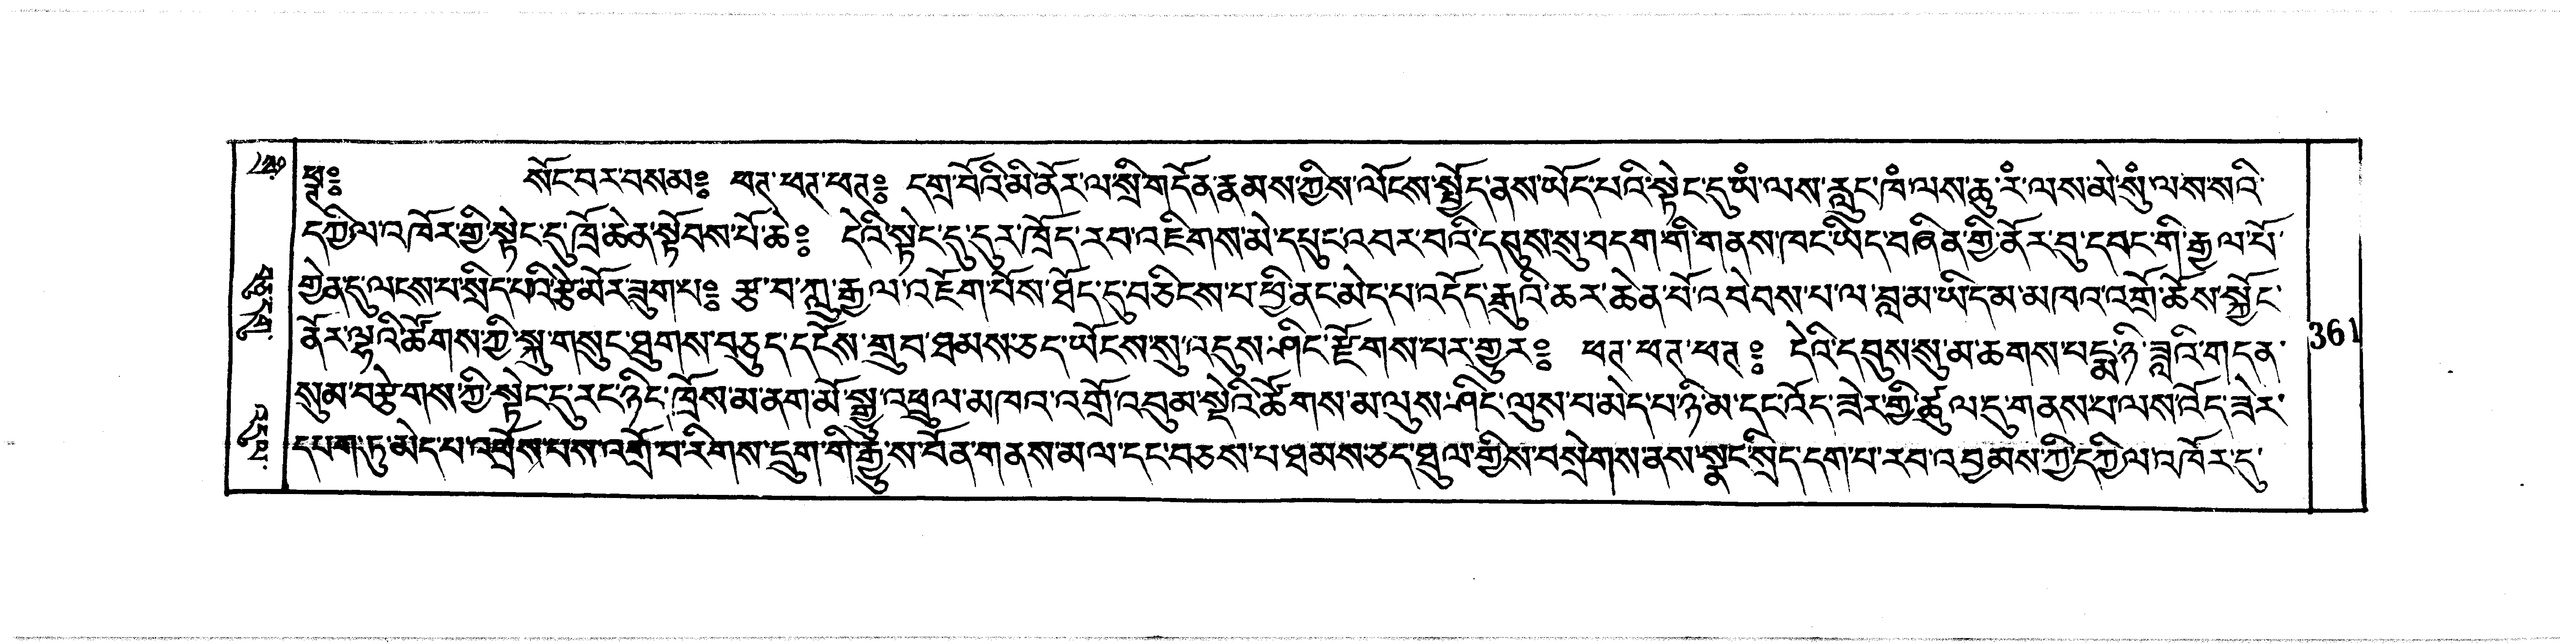 ཕཊ༔ སོང་བར་བསམ༔ ཕཊ་ཕཊ་ཕཊ༔ དགྲ་བོའི་མི་ནོར་ལ་སྲི་གདོན་རྣམས་ཀྱིས་ལོངས་སྤྱོད་ནས་ཡོད་པའི་སྟེང་དུ་ཡཾ་ལས་རླུང་ཁཾ་ལས་ཆུ་རཾ་ལས་མེ་སུཾ་ལས་སའི་
དཀྱིལ་འཁོར་གྱི་སྟེང་དུ་ཁྲོ་ཆེན་སྟོབས་པོ་ཆེ༔ དེའི་སྟེང་དུ་དུར་ཁྲོད་རབ་འཇིགས་མེ་དཔུང་འབར་བའི་དབུས་སུ་བདག་གི་གནས་ཁང་ཡིད་བཞིན་གྱི་ནོར་བུ་དབང་གི་རྒྱལ་པོ་
གྱེན་དུ་ལངས་པ་སྲིད་པའི་རྩེ་མོར་ཟུག་པ༔ རྩ་བ་ཀླུ་རྒྱལ་འཇོག་པོས་ཐོད་དུ་བཅིངས་པ་ཕྱི་ནང་མེད་པ་འདོད་རྒུའི་ཆར་ཆེན་པོ་འབེབས་པ་ལ་བླ་མ་ཡི་དམ་མཁའ་འགྲོ་ཆོས་སྐྱོང་
ནོར་ལྷའི་ཚོགས་ཀྱི་སྐུ་གསུང་ཐུགས་བཅུད་དངོས་གྲུབ་ཐམས་ཅད་ཡོངས་སུ་འདུས་ཤིང་རྫོགས་པར་གྱུར༔ ཕཊ་ཕཊ་ཕཊ༔ དེའི་དབུས་སུ་མ་ཆགས་པདྨ་ཉི་ཟླའི་གདན་
སུམ་བརྩེགས་ཀྱི་སྟེང་དུ་རང་ཉིད་ཁྲོས་མ་ནག་མོ་སྒྱུ་འཕྲུལ་མཁའ་འགྲོ་འབུམ་སྡེའི་ཚོགས་མ་ལུས་ཤིང་ལུས་པ་མེད་པ་ཉི་མ་དང་འོད་ཟེར་གྱི་ཚུལ་དུ་གནས་པ་ལས་འོད་ཟེར་
དཔག་ཏུ་མེད་པ་འཕྲོས་པས་འགྲོ་བ་རིགས་དྲུག་གི་རྒྱུ་ས་བོན་གནས་མལ་དང་བཅས་པ་ཐམས་ཅད་ཐུལ་གྱིས་བསྲེགས་ནས་སྣང་སྲིད་དག་པ་རབ་འབྱམས་ཀྱི་དཀྱིལ་འཁོར་དུ་
36